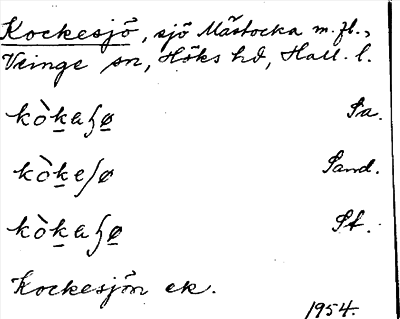 Kockesjö, sjö Mästocka m. fl.,
Veinge sn, Höks hd, Hall. l.
kòḵaʃø̱ Sa.
kòḵeʃø Sand.
kòḵaʃø̱ St.
Kockesjön ek.
1954.